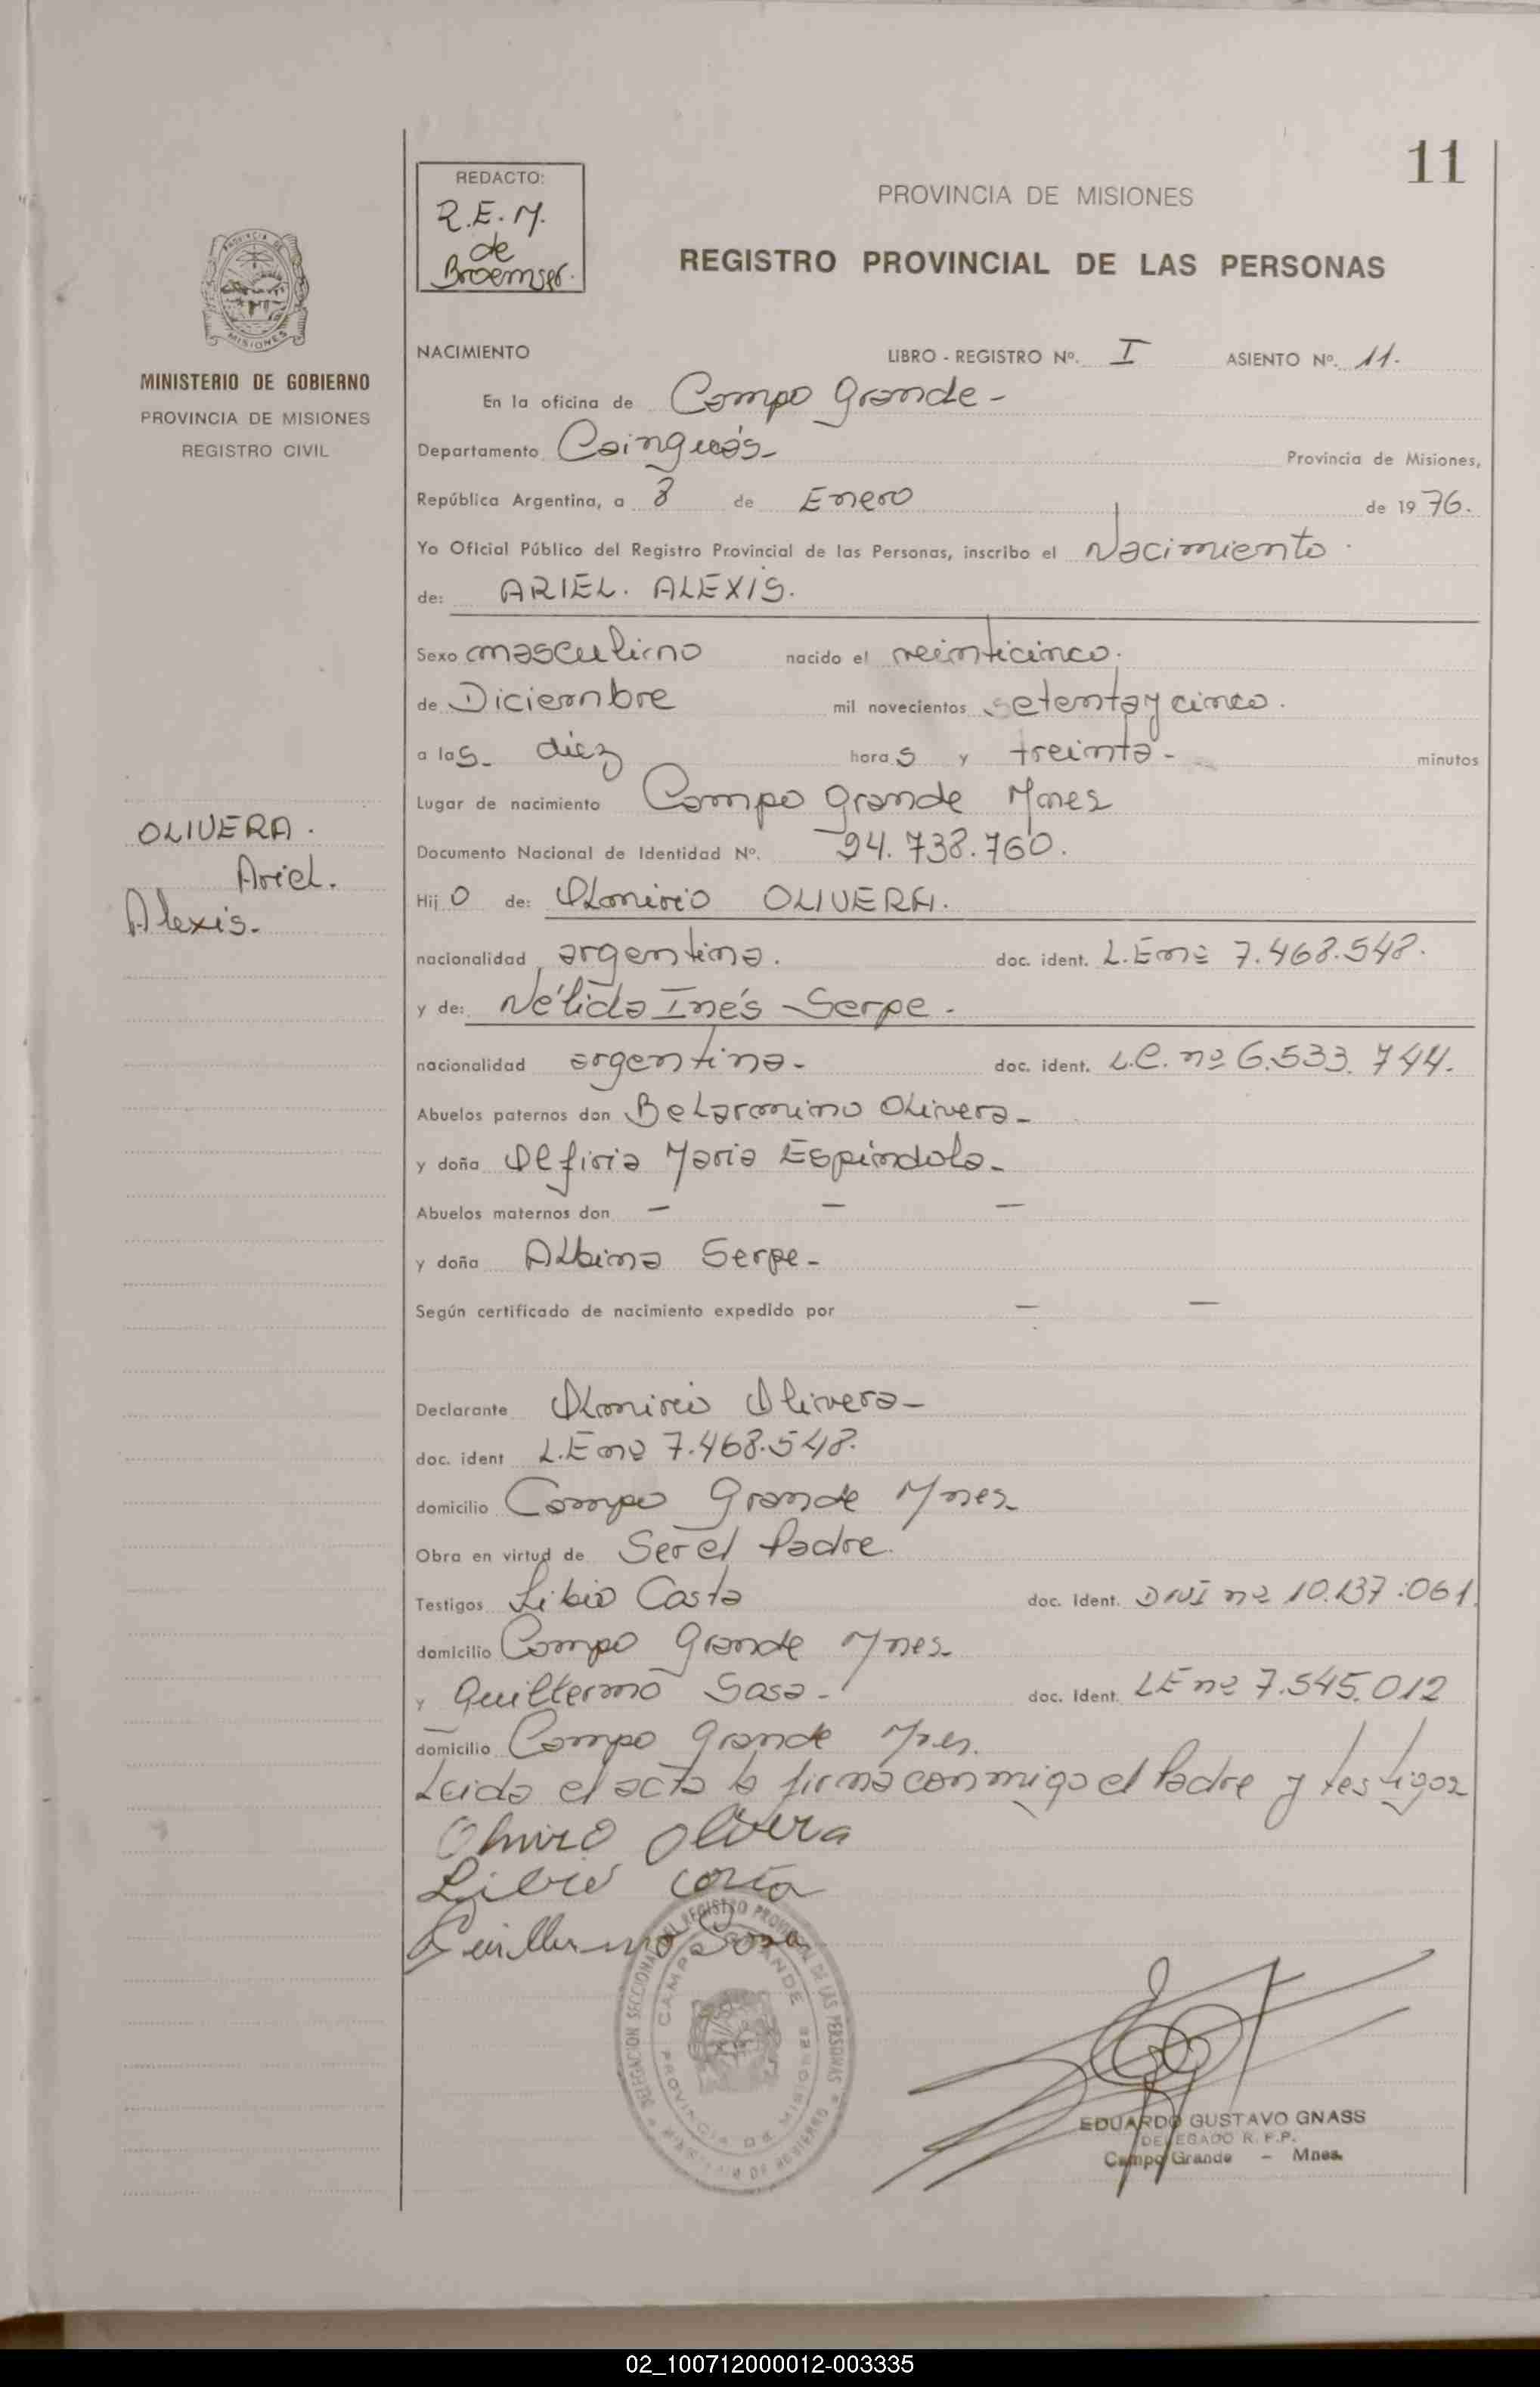 11
REDACTO:
R.E.M.
de
Broemser.
PROVINCIA DE MISIONES
REGISTRO PROVINCIAL DE LAS PERSONAS
PROVINCIA DE
MISIONES
MINISTERIO DE GOBIERNO
PROVINCIA DE MISIONES
REGISTRO CIVIL
NACIMIENTO LIBRO - REGISTRO Nº. I ASIENTO Nº. 11.
En la oficina de Campo Grande -
Departamento Cainguás - Provincia de Misiones,
República Argentina, a 8 de Enero de 1976.
Yo Oficial Público del Registro Provincial de las Personas, inscribo el Nacimiento.
de: ARIEL. ALEXIS.
Sexo masculino nacido el veinticinco.
de Diciembre mil novecientos setentaycinco.
a las - diez horas y treinta - minutos
Lugar de nacimiento Campo Grande Mnes
Documento Nacional de Identidad Nº. 24.738.760.
OLIVERA.
Ariel.
Alexis.
Hijo de: Olomiro OLIVERA.
nacionalidad argentina. doc. ident. L.E nº 7.468.548.
y de: Nélida Inés Serpe -
nacionalidad argentina - doc. ident. L.C. nº 6.533.744.
Abuelos paternos don Belarmino Olivera -
y doña Olfiria Maria Espíndola -
Abuelos maternos don - - -
y doña Albina Serpe -
Según certificado de nacimiento expedido por - -
Declarante Olmiro Olivera -
doc. ident L.E nº 7.468.548.
domicilio Campo Grande Mnes
Obra en virtud de Ser el Padre.
Testigos Libio Costa doc. Ident. DNI nº 10.137.061.
domicilio Campo Grande Mnes.
y Guillermo Sosa - doc. Ident. LE nº 7.545.012
domicilio Campo Grande Mnes.
Leida el acta la firma conmigo el Padre y testigos
Olmiro Olivera
Libio Costa
Guillermo Sosa
DELEGACION SECCIONAL DEL REGISTRO PROVINCIAL DE LAS PERSONAS
CAMPO GRANDE
PROVINCIA DE MISIONES
MINISTERIO DE GOBIERNO
EDUARDO GUSTAVO GNASS
DELEGADO R. P. P.
Campo Grande - Mnes.
02_100712000012-003335